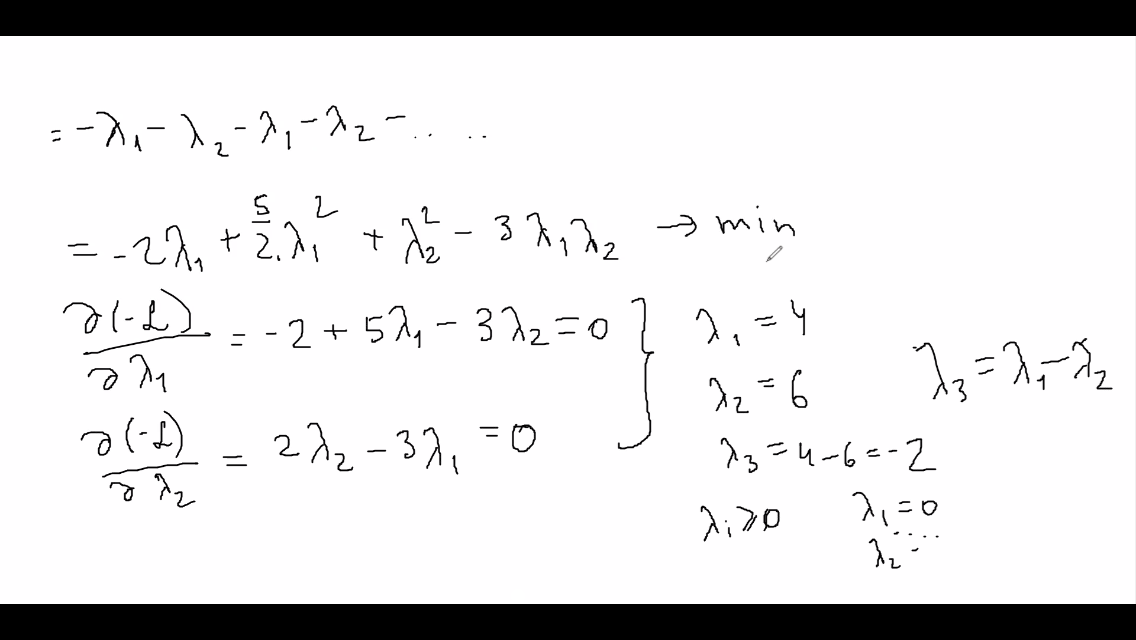 = -λ₁ - λ₂ - λ₁ - λ₂ - .. ..
= -2λ₁ + 5/2 · λ₁² + λ₂² - 3λ₁λ₂ → min
∂(-L)/∂λ₁ = -2 + 5λ₁ - 3λ₂ = 0
∂(-L)/∂λ₂ = 2λ₂ - 3λ₁ = 0 }
λ₁ = 4
λ₂ = 6
λ₃ = 4 - 6 = -2
λ₃ = λ₁ - λ₂
λᵢ ≥ 0
λ₁ = 0 ....
λ₂ = ..